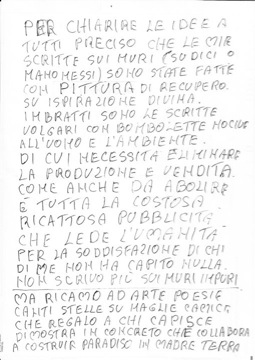 PER CHIARIRE LE IDEE A
TUTTI PRECISO CHE LE MIE
SCRITTE SUI MURI (SUDICI O
MANOMESSI) SONO STATE FATTE
CON PITTURA DI RECUPERO.
SU ISPIRAZIONE DIVINA.
IMBRATTI SONO LE SCRITTE
VOLGARI CON BOMBOLETTE NOCIVE
ALL'UOMO E L'AMBIENTE.
DI CUI NECESSITA ELIMINARE
LA PRODUZIONE E VENDITA.
COME ANCHE DA ABOLIRE
E TUTTA LA COSTOSA
RICATTOSA PUBBLICITA
CHE LEDE L'UMANITA
PER LA SODDISFAZIONE DI CHI
DI ME NON HA CAPITO NULLA.
NON SCRIVO PIÙ SUI MURI IMPURI
MA RICAMO AD ARTE POESIE
CANTI STELLE SU MAGLIE CAMICE
CHE REGALO A CHI CAPISCE
DIMOSTRA IN CONCRETO CHE COLLABORA
A COSTRUIR PARADISO IN MADRE TERRA